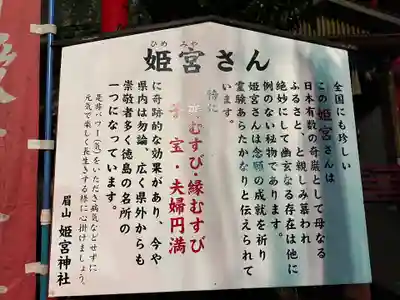 ひめ みや
姫宮さん
全国にも珍しい
この姫宮さんは
日本有数の奇巌として母なる
ふるさと、と親しみ慕われ
絶妙にして幽玄なる存在は他に
例のない秘物であります。
姫宮さんは念願の成就を祈り
霊験あらたかなりと伝えられて
います。
特に
むすび・縁むすび
子宝・夫婦円満
に奇跡的な効果があり、今や
県内は勿論、広く県外からも
崇敬者多く徳島の名所の
一つになっています。
是非パワー(気)をいただき病気などせずに
元気で楽しく長生きする様に心掛けましょう。
眉山 姫宮神社